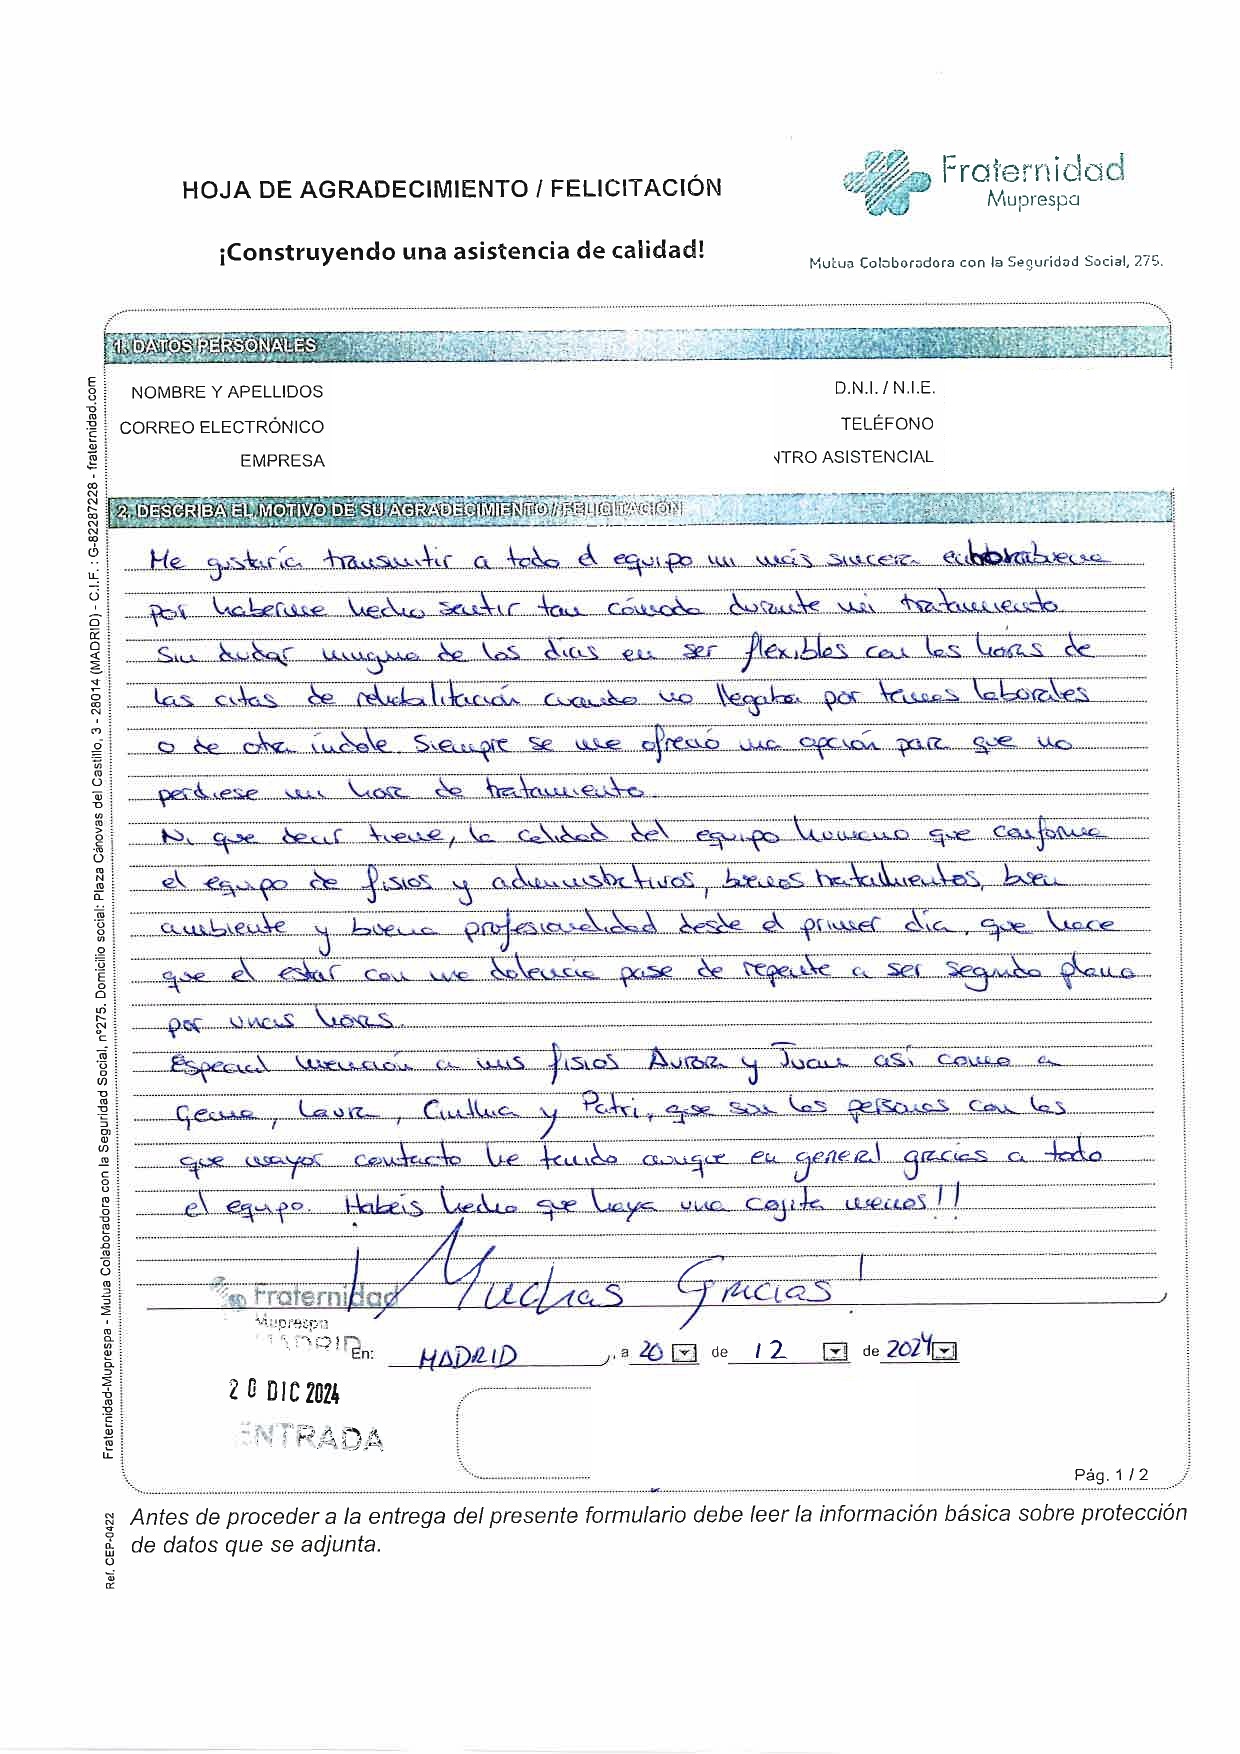 HOJA DE AGRADECIMIENTO / FELICITACIÓN
Fraternidad
Muprespa
¡Construyendo una asistencia de calidad!
Mutua Colaboradora con la Seguridad Social, 275.
1. DATOS PERSONALES
NOMBRE Y APELLIDOS
D.N.I. / N.I.E.
CORREO ELECTRÓNICO
TELÉFONO
EMPRESA
NTRO ASISTENCIAL
2. DESCRIBA EL MOTIVO DE SU AGRADECIMIENTO / FELICITACIÓN
Me gustaría transmitir a todo el equipo mi más sincera enhorabuena
por haberme hecho sentir tan cómodo durante mi tratamiento
Sin dudar ninguno de los días en ser flexibles con las horas de
las citas de rehabilitación cuando no llegaba por temas laborales
o de otra índole. Siempre se me ofreció una opción para que no
perdiese mi hora de tratamiento.
Ni que decir tiene, la calidad del equipo humano que conforma
el equipo de fisios y administrativos, buenos tratamientos, buen
ambiente y buena profesionalidad desde el primer día, que hace
que el estar con una dolencia pase de repente a ser segundo plano
por unas horas.
Especial mención a mis fisios Aurora y Juan así como a
Gema, Laura, y Patri, que son las personas con las
que mayor contacto he tenido aunque en general gracias a todo
el equipo. Habéis hecho que haya una cojita menos!!
¡Muchas Gracias!
Fraternidad
Muprespa
MADRID
En: MADRID, a 20 de 12 de 2024
20 DIC 2024
ENTRADA
Pág. 1 / 2
Antes de proceder a la entrega del presente formulario debe leer la información básica sobre protección
de datos que se adjunta.
Fraternidad-Muprespa - Mutua Colaboradora con la Seguridad Social, nº275. Domicilio social: Plaza Cánovas del Castillo, 3 - 28014 (MADRID) - C.I.F. : G-82287228 - fraternidad.com
Ref. CEP-0422